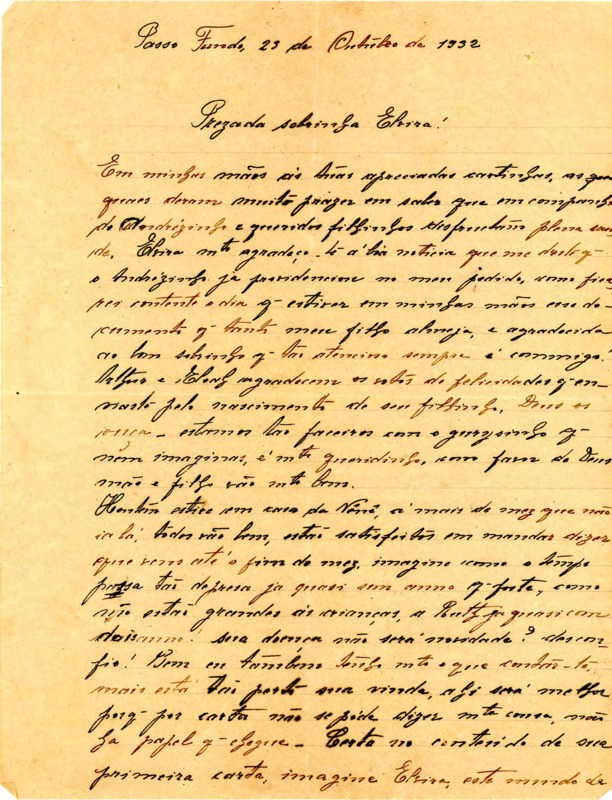 Passo Fundo, 23 de Outúbro de 1932
Prezada sobrinha Elvira!
Em minhas mãos ás túas apreciadas cartinhas, as
quaes deram muitó prazer em saber que em companhia
do Andrézinho e queridos filhinhos desfructam plena sau
de, Elvira mtº agradeço-te á bôa noticia que me deste q-
o Andrézinho ja providenciou no meu pedido, como fica
rei contente o dia q- estiver em minhas mãos esse do
cumento q- tantó meu filho almeja, e agradecida
ao bom sobrinho q- tão atencioso sempre é commigo.
Arthur e agradecem os votós de felicidades q- en
viastó pelo nascimentó de seu filhinho, Deus os
ouça - estamos tão faceiros com o gurysinho q-
nem imaginas, é mtº queridinho, com favor de Deus
mãe e filho vão mtº bem.
Hontêm estive em casa da Nênê, á mais de mez que não
ia lá, todos vão bem, estão satisfeitos em mandar dizer
que vens até o fim do mez, imagine como o têmpo
passa tão depresa ja quasi um anno q- foste, como
não estão grandes ás crianças, a Ruth ja quasi com
dois anno! sua doença não será novidade? descon
fio! Bem eu tâmbem tenho mtº o que contár-tê
mais está tão pertó sua vinda, ahi será melhor
porq- por carta não se póde dizer mtª cousa, não
ha papel q- chegue - Certa no conteúdo de sua
primeira carta, imagine Elvira, este mundo de